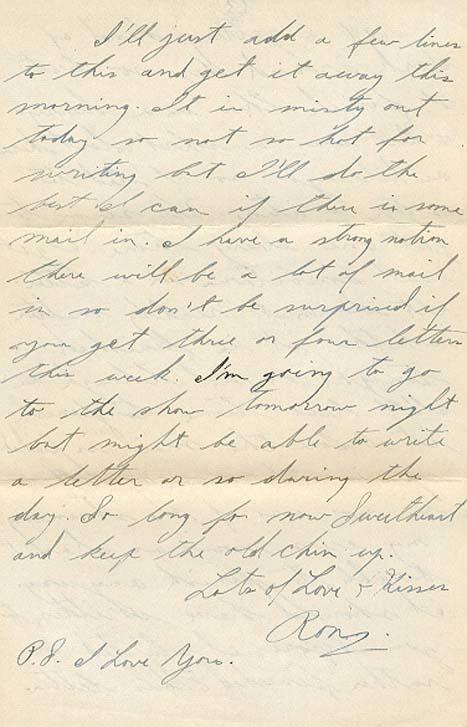 I'll just add a few lines
to this and get it away this
morning. It is misty out
today so not so hot for
writing but I'll do the
best I can if there is some
mail in. I have a strong notion
there will be a lot of mail
in so don't be surprised if
you get three or four letters
this week. I'm going to go
to the show tomorrow night
but might be able to write
a letter or so during the
day. So long for now Sweetheart
and keep the old chin up.
Lots of Love & Kisses
Ron
P.S. I Love You.